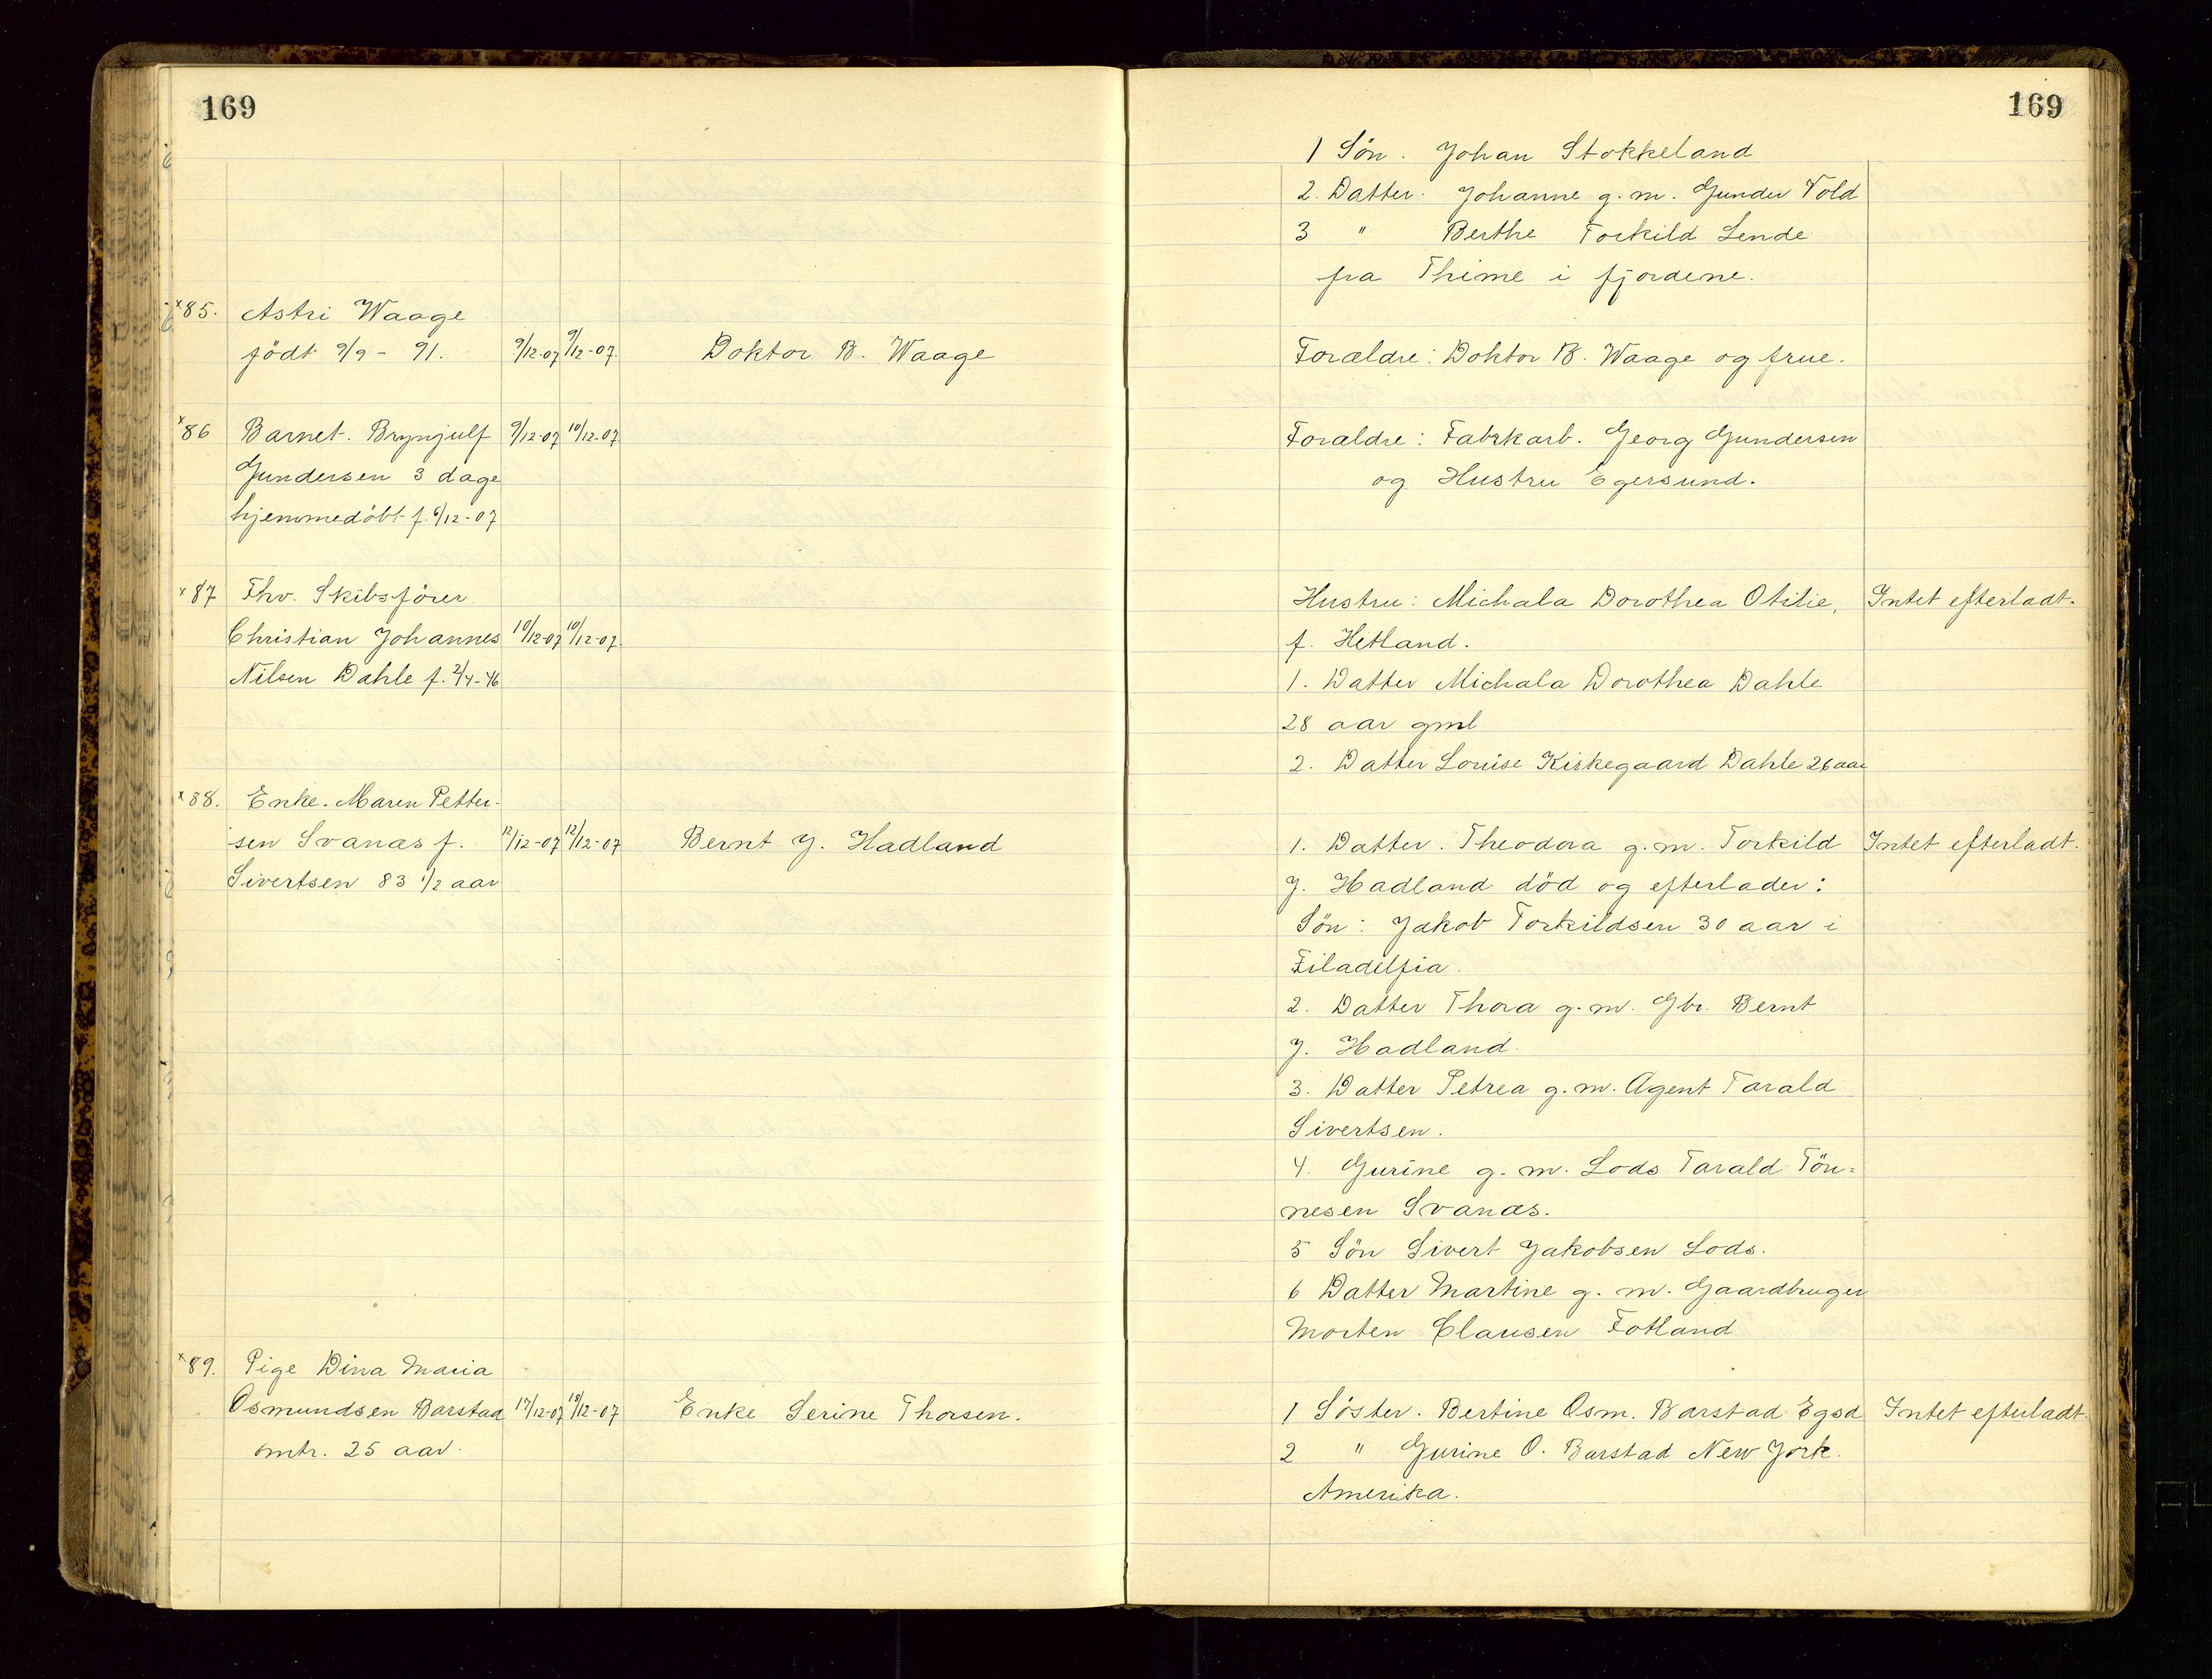 169
169
1 Sön. Johan Stokkeland
2. Datter. Johanne g. m. Gunder Vold
3 " Berthe Torkild Lende
fra Thime i fjordene.
×85. Astri Waage
födt 9/9 - 91. 9/12-07 9/12-07. Doktor B. Waage Forældre: Doktor B. Waage og frue.
×86 Barnet. Brynjulf 9/12-07 10/12-07. Forældre: Fabrkarb. Georg Gundersen
Gundersen 3 dage og Hustru Egersund.
hjemmedöbt f. 6/12-07
×87 Fhv. Skibsförer Hustru: Michala Dorothea Otilie, Intet efterladt.
Christian Johannes 10/12-07 10/12-07. f. Hetland.
Nilsen Dahle f. 2/4-46 1. Datter Michala Dorothea Dahle
28 aar gml
2. Datter Louise Kirkegaard Dahle 26 aar
×88. Enke. Maren Petter-
sen Svanæs f. 12/12-07 12/12-07 Bernt J. Hadland 1. Datter. Theodora g. m. Torkild Intet efterladt.
Sivertsen 83 1/2 aar J. Hadland död og efterlader:
Sön: Jakob Torkildsen 30 aar i
Filadelfia.
2. Datter Thora g. m. Gbr. Bernt
J. Hadland.
3. Datter Petrea g. m. Agent Tarald
Sivertsen.
4. Gurine g. m. Lods Tarald Tön=
nesen Svanæs.
5 Sön Sivert Jakobsen Lods.
6 Datter Martine g. m. Gaardbruger
Morten Clausen Fotland
×89. Pige Dina Maria
Osmundsen Barstad 17/12-07 18/12-07 Enke Serine Thorsen. 1 Söster. Bertine Osm. Barstad Egsd Intet efterladt.
omtr. 25 aar. 2 " Gurine O. Barstad New York.
Amerika.